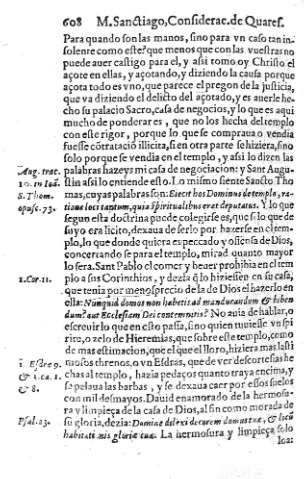 608 M. Sanctiago, Considerac. de Quares.
Para quando son las manos, sino para vn caso tan in-
solente como este? que menos que con las vuestras no
puede auer castigo para el, y assi tomo oy Christo el
açote en ellas, y açotando, y diziendo la causa porque
açota todo es vno, que parece el pregon de la justicia,
que va diziendo el delicto del açotado, y es auerle he-
cho su palacio Sacro, casa de negocios, y lo que es aqui
mucho de ponderar es, que no los hecha del templo
con este rigor, porque lo que se compraua o vendia
fuesse cõtratació illicita, si en otra parte se hiziera, sino
solo porque se vendia en el templo, y assi lo dizen las
palabras hazeys mi casa de negociacion: y Sant Augu-
stin assi lo entiende esto. Lo mismo siente Sancto Tho
mas, cuyas palabras son: Eiecit hos Dominus de templo, ra-
tione loci tantum, quia spiritualibus erat deputatus. Y lo que
segun esta doctrina puede colegirse es, que si lo que de
suyo era licito, dexaua de serlo por hazerse en el tem-
plo, lo que donde quiera es peccado y offensa de Dios,
concertandose para el templo, mirad quanto mayor
lo sera. Sant Pablo el comer y beuer prohibia en el tem
plo a sus Corinthios, y dezia q̃ lo hiziessen en su casa,
que tenia por menosprecio de la de Dios el hazerlo en
esta: Nunquid domos non habetis ad manducandum & biben
dum? aut Ecclesiam Dei contemnitis? No auia de hablar, o
escreuir lo que en esto passa, sino quien tuuiesse vn spi
ritu, o zelo de Hieremias, que sobre este templo, como
de mas estimacion, que el que el lloro, hiziera mas lasti
mosos threnos, o vn Esdras, que de ver descortesias he
chas al templo, hazia pedaços quanto traya encima, y
se pelaua las barbas, y se dexaua caer por essos suelos
con mil desmayos. Dauid enamorado de la hermosu-
ra y limpieça de la casa de Dios, al fin como morada de
su gloria, dezia: Domine dilexi decorem domus tuæ, & locũ
habitationis gloriæ tuæ. La hermosura y limpieça solo
Aug. trac.
10. in Ioã.
S. Thom.
opusc. 73.
1. Cor. 11.
1. Esdre 9.
& 8.
Psal. 25.